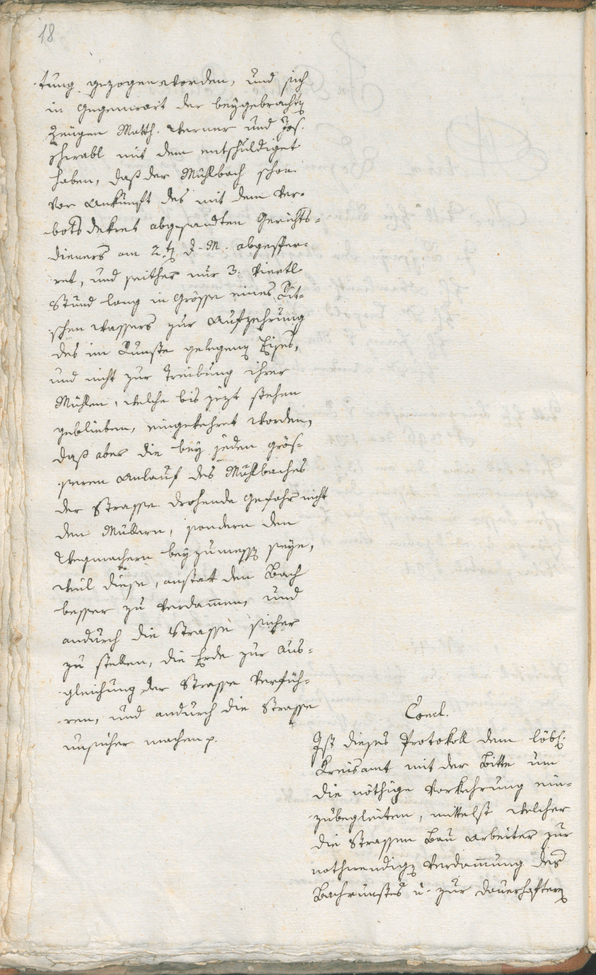 18
tung gezogen worden, und sich
in Gegenwart der beygebrachten
Zeugen Matth. Werner und Jos.
Schrabl mit dem entschuldiget
haben, daß der Mühlbach schon
vor Ankunft des mit dem Ver-
botsdekret abgesandten Gerichts-
dieners am 2ten d. M. abgesper-
ret, und seither nur 3 Viertl
Stund lang in Grösse eines
schen Wassers zur Aufzehrung
des im Runste gelegenen Eises,
und nicht zur Treibung ihrer
Mühlen, welche bis jezt stehen
geblieben, eingekehret worden,
daß aber die bey jeden grös-
seren Anlauf des Mühlbaches
der Strasse drohende Gefahr nicht
den Müllern, sondern den
Wegmachern beyzumessen seye,
weil diese, anstatt den Bach
besser zu verdammen, und
andurch die Strasse sicher
zu stellen, die Erde zur Aus-
gleichung der Strasse verfüh-
ren, und andurch die Strasse
unsicher machen p.
Concl.
Ist dieses Protokoll dem löbl.
Kreisamt mit der Bitte um
die nöthige Vorkehrung ein-
zubegleiten, mittelst welcher
die Strassen Bau Arbeiter zur
nothwendigen Verdammung des
Bachrunstes u. zur dauerhaften